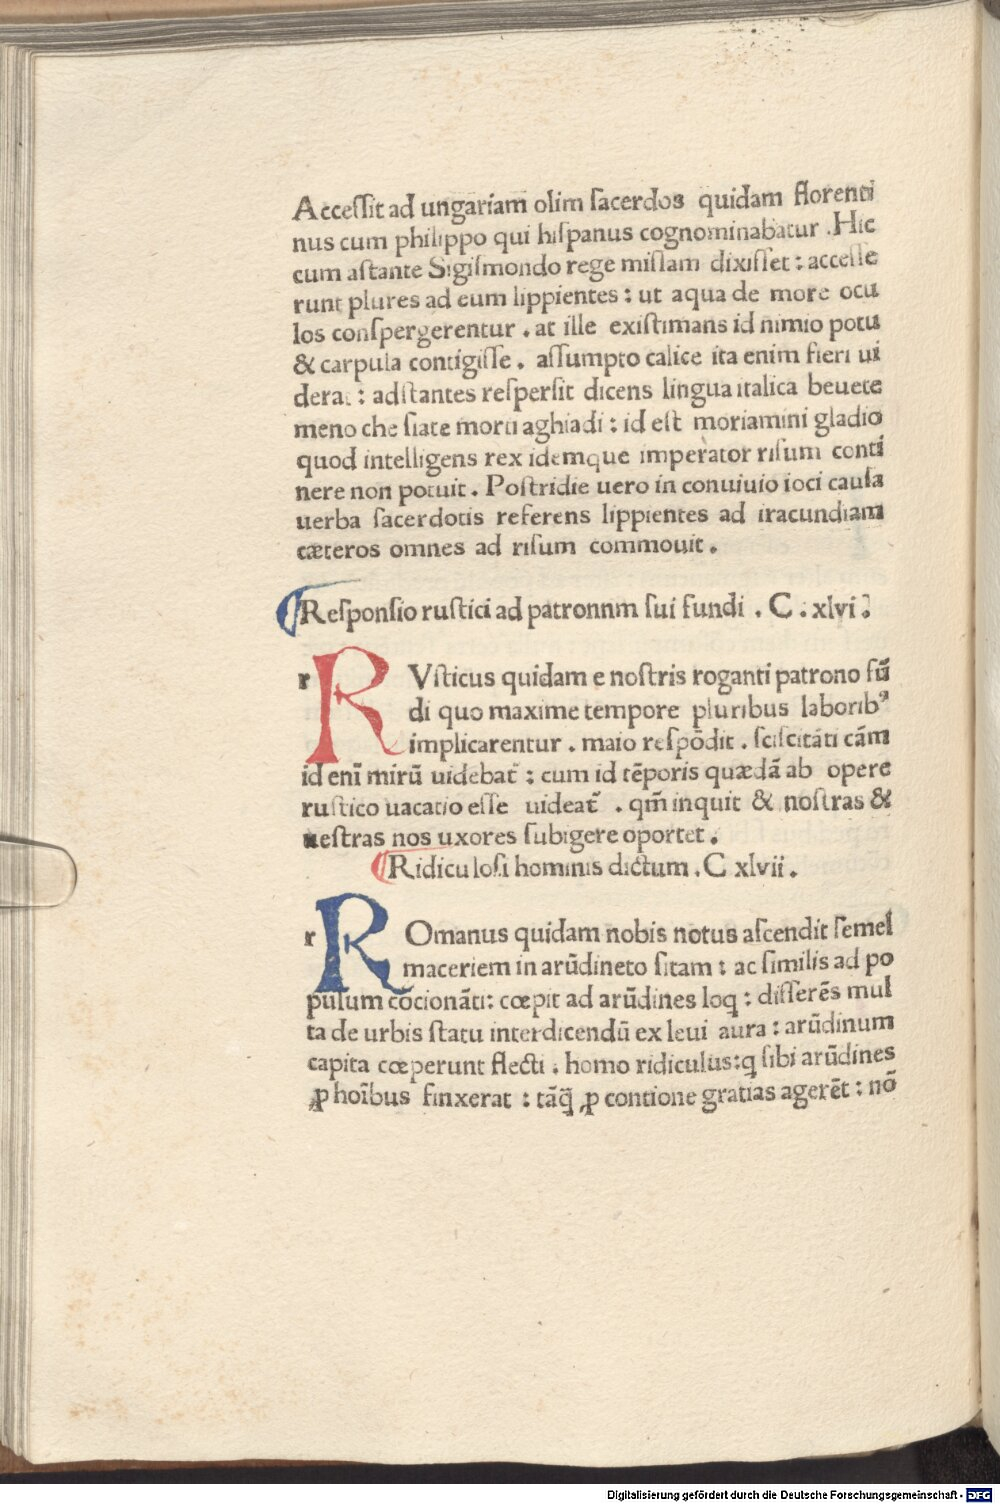 Acceſſit ad ungariam olim ſacerdos quidam florenti
nus cum philippo qui hiſpanus cognominabatur . Hic
cum aſtante Sigiſmondo rege miſſam dixiſſet : acceſſe
runt plures ad eum lippientes : ut aqua de more ocu
los conſpergerentur . at ille exiſtimans id nimio potu
& carpula contigiſſe . aſſumpto calice ita enim fieri ui
derat : adſtantes reſperſit dicens lingua italica beuete
meno che ſiate morti aghiadi : id eſt moriamini gladio
quod intelligens rex idemque imperator riſum conti
nere non potuit . Poſtridie uero in conuiuio ioci cauſa
uerba ſacerdotis referens lippientes ad iracundiam
cæteros omnes ad riſum commouit .
¶Reſponſio ruſtici ad patronnm ſui fundi . C . xlvi .
r RVſticus quidam e noſtris roganti patrono fū
di quo maxime tempore pluribus laborib⁹
implicarentur . maio reſpōdit . ſciſcitāti cām
id enī mirū uidebat̄ : cum id tēporis quædā ab opere
ruſtico uacatio eſſe uideat̄ . qm̄ inquit & noſtras &
ueſtras nos uxores ſubigere oportet .
¶Ridiculoſi hominis dictum . C xlvii .
r ROmanus quidam nobis notus aſcendit ſemel
maceriem in arūdineto ſitam : ac ſimilis ad po
pulum cōcionāti : cœpit ad arūdines loq : differēs mul
ta de urbis ſtatu interdicendū ex leui aura : arūdinum
capita cœperunt flecti . homo ridiculus : q ſibi arūdines
ꝓ hoībus finxerat : tāq̄ ꝓ contione gratias agerēt : nō
Digitalisierung gefördert durch die Deutsche Forschungsgemeinschaft - DFG